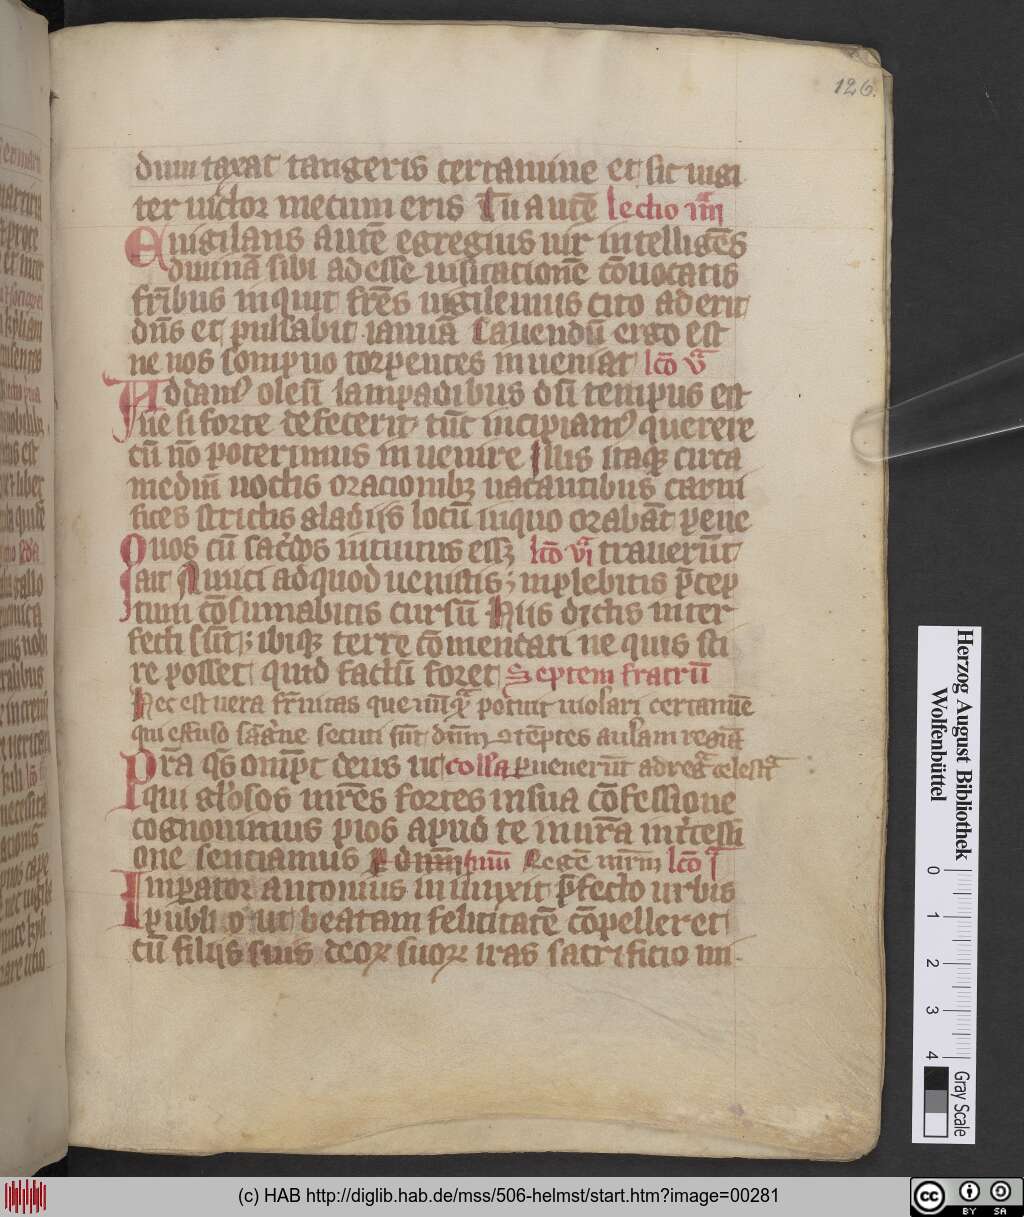 126.
dum taxat tangeris certamine et sic iugi
ter uictor mecum eris Tu autē lectio iiij
Euigilans autē egregius uir intelligēs
diuinā sibi adesse uisitationē cōuocatis
fr̄ibus inquit fr̄es uigilemus cito aderit
dn̄s et pulsabit ianuā Cauendū ergo est
ne uos sompno torpentes inueniat lc̄o v
Addant᷑ olei lampadibus dū tempus est
ne si forte defecerit tūc incipiant᷑ querere
cū nō poterimus inuenire Illis itaqꝫ circa
mediū noctis oracionibꝫ uacantibus carni
fices strictis gladiis locū inquo orabāt pene
Quos cū sac̄dos intuitus essꝫ lc̄o vi trauerūt
ait Amici adquod uenistis; inplebitis p̄cep
tum cōsumabitis cursū Hiis dictis inter
fecti sūt; ibiqꝫ terre cōmendati ne quis sci
re posset quid factū foret Septem fratrū
Hec est uera fr̄nitas que nūqᷓ potuit uiolari certamīe
qui effuso sāgr̄ne secuti sūt dn̄m ꝯtēptes aulam regiā
Pr̄a q̄s omp̄t deus ut colla puenerūt ad regᷓ celestᷓ
qui gl̓osos mr̄es fortes insua cōfessione
cognouimus pios apud te in nr̄a int̓cessi
one sentiamus P dn̄m Inuī Regē mr̄m lc̄o i
Imperator antonius iniunxit p̄fecto urbis
publio ut beatam felicitatē cōpelleret
cū filijs suis deoꝝ suoꝝ iras sacrificio mi-
Herzog August Bibliothek
Wolfenbüttel
0 1 2 3 4
Gray Scale
(c) HAB http://diglib.hab.de/mss/506-helmst/start.htm?image=00281
cc BY SA